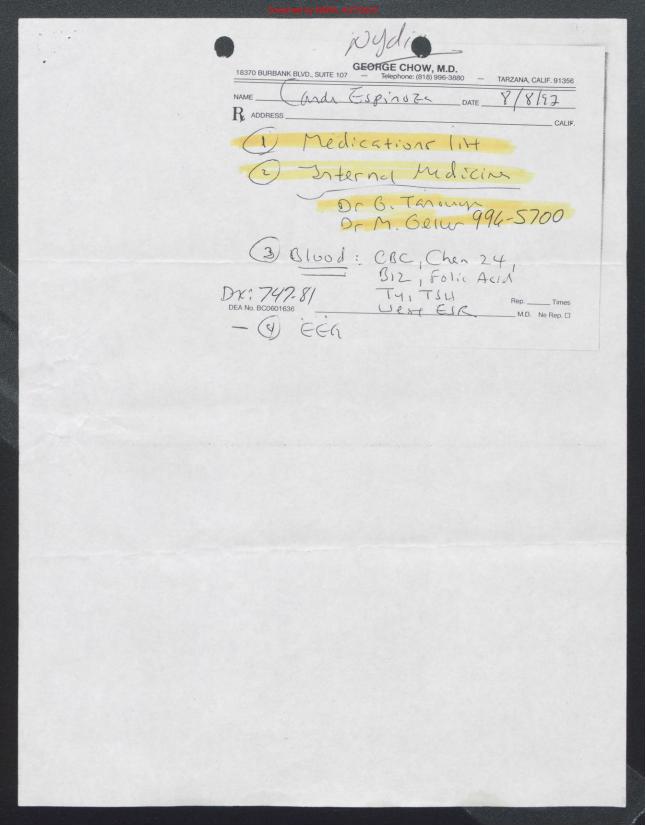 Nydia
GEORGE CHOW, M.D.
18370 BURBANK BLVD., SUITE 107 — Telephone: (818) 996-3880 — TARZANA, CALIF. 91356
NAME Espinoza DATE 8/8/97
℞ ADDRESS CALIF.
① Medications list
② Internal Medicine
Dr G.
Dr M. Geller 996-5700
③ Blood: CBC, Chem 24,
B12, Folic Acid
Dx: 747.81 T4, TSH
DEA No. BC0601636 West ESR M.D.
Rep. Times
No Rep. ☐
— ④ EEG